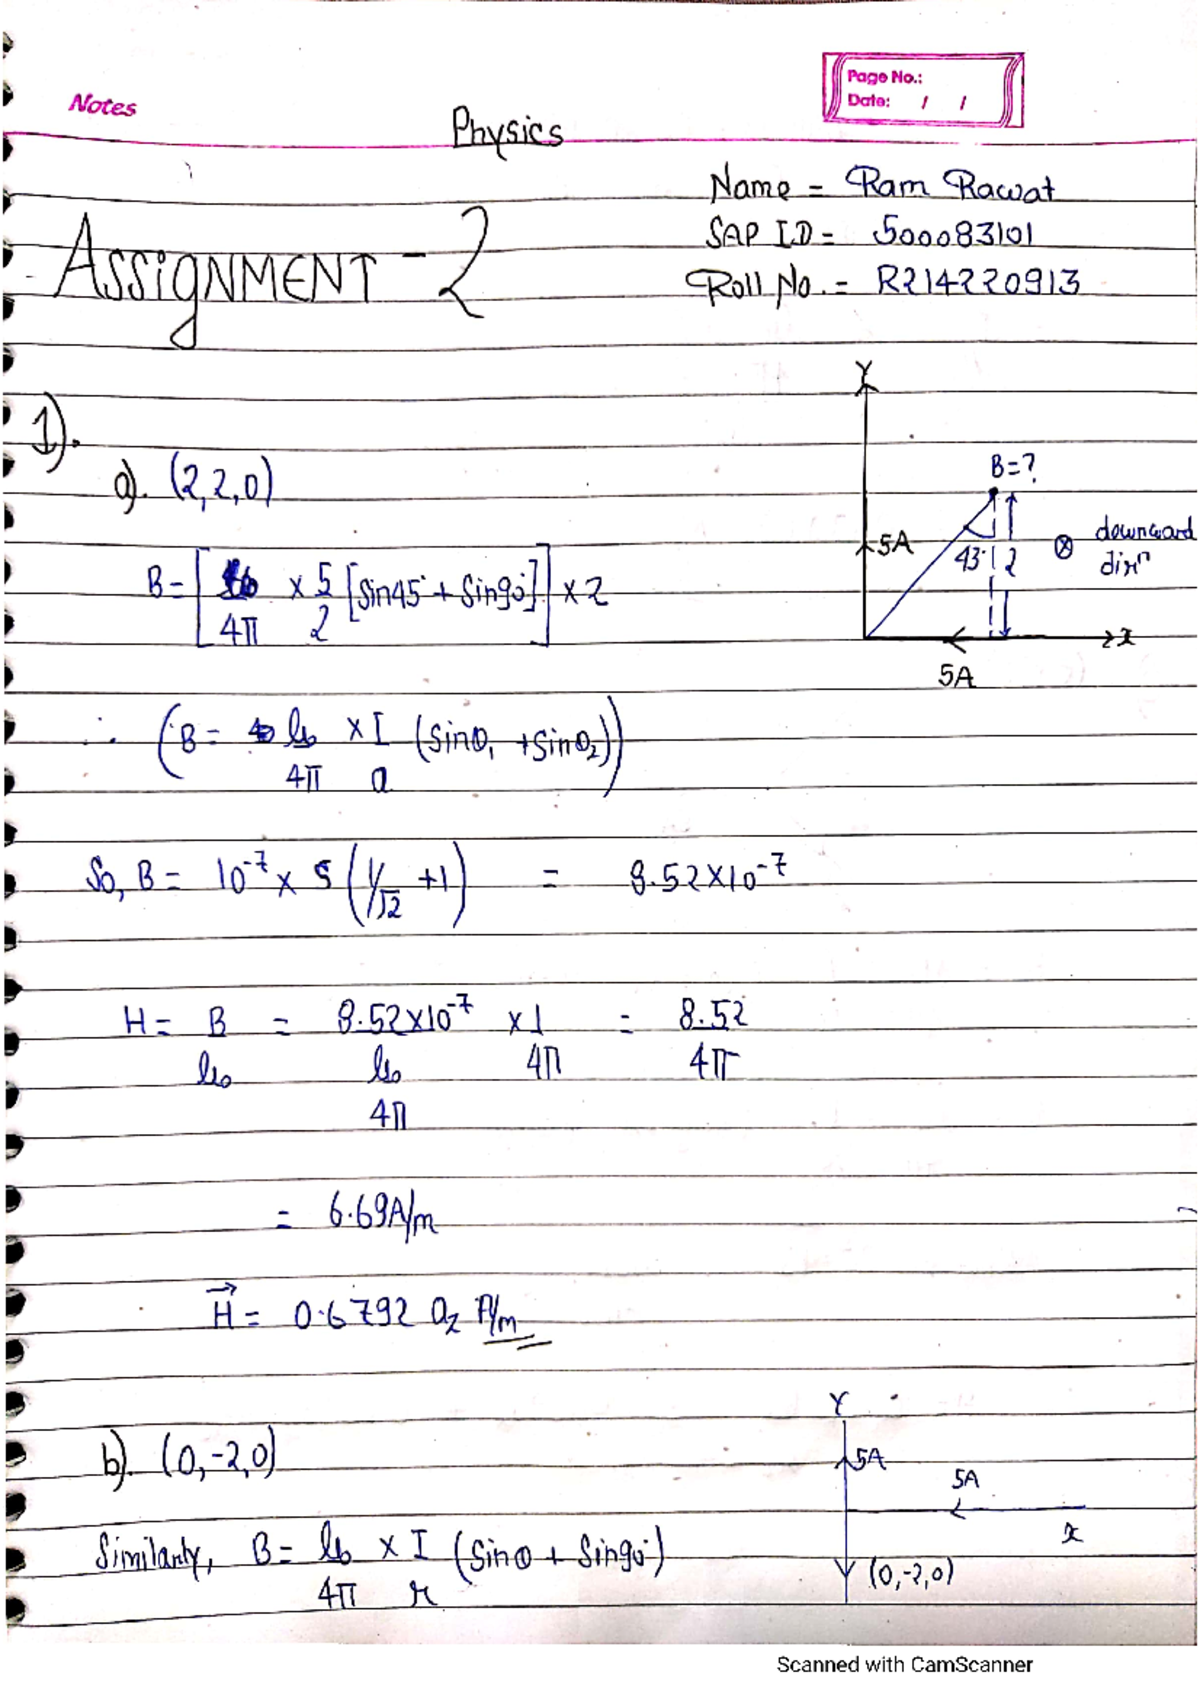 Notes
Page No.:
Date: / /
Physics
Name = Ram Rawat
SAP I.D = 500083101
Roll No. = R214220913
ASSiGNMENT - 2
1).
a). (2,2,0)
Y
B=?
5A
45° 2
⊗ downward dirⁿ
x
5A
B = [μ₀/4π × 5/2 [Sin45° + Sin90°]] × 2
∴ (B = μ₀/4π × I/a (Sinθ₁ + Sinθ₂))
So, B = 10⁻⁷ × 5 (1/√2 + 1) = 8.52×10⁻⁷
H = B/μ₀ = 8.52×10⁻⁷/(μ₀/4π) × 1/4π = 8.52/4π
= 6.69A/m
H⃗ = 0.6792 a_z A/m
b). (0,-2,0)
Y
5A
5A
x
(0,-2,0)
Similarly, B = μ₀/4π × I/r (Sinθ + Sin90°)
Scanned with CamScanner